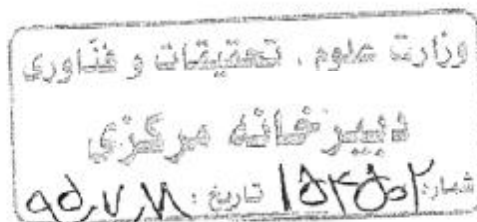 وزارت علوم ، تحقیقات و فناوری
دبیرخانه مرکزی
شماره: ۱۵۳۵۰۲ تاریخ: ۹۵،۷،۲۸